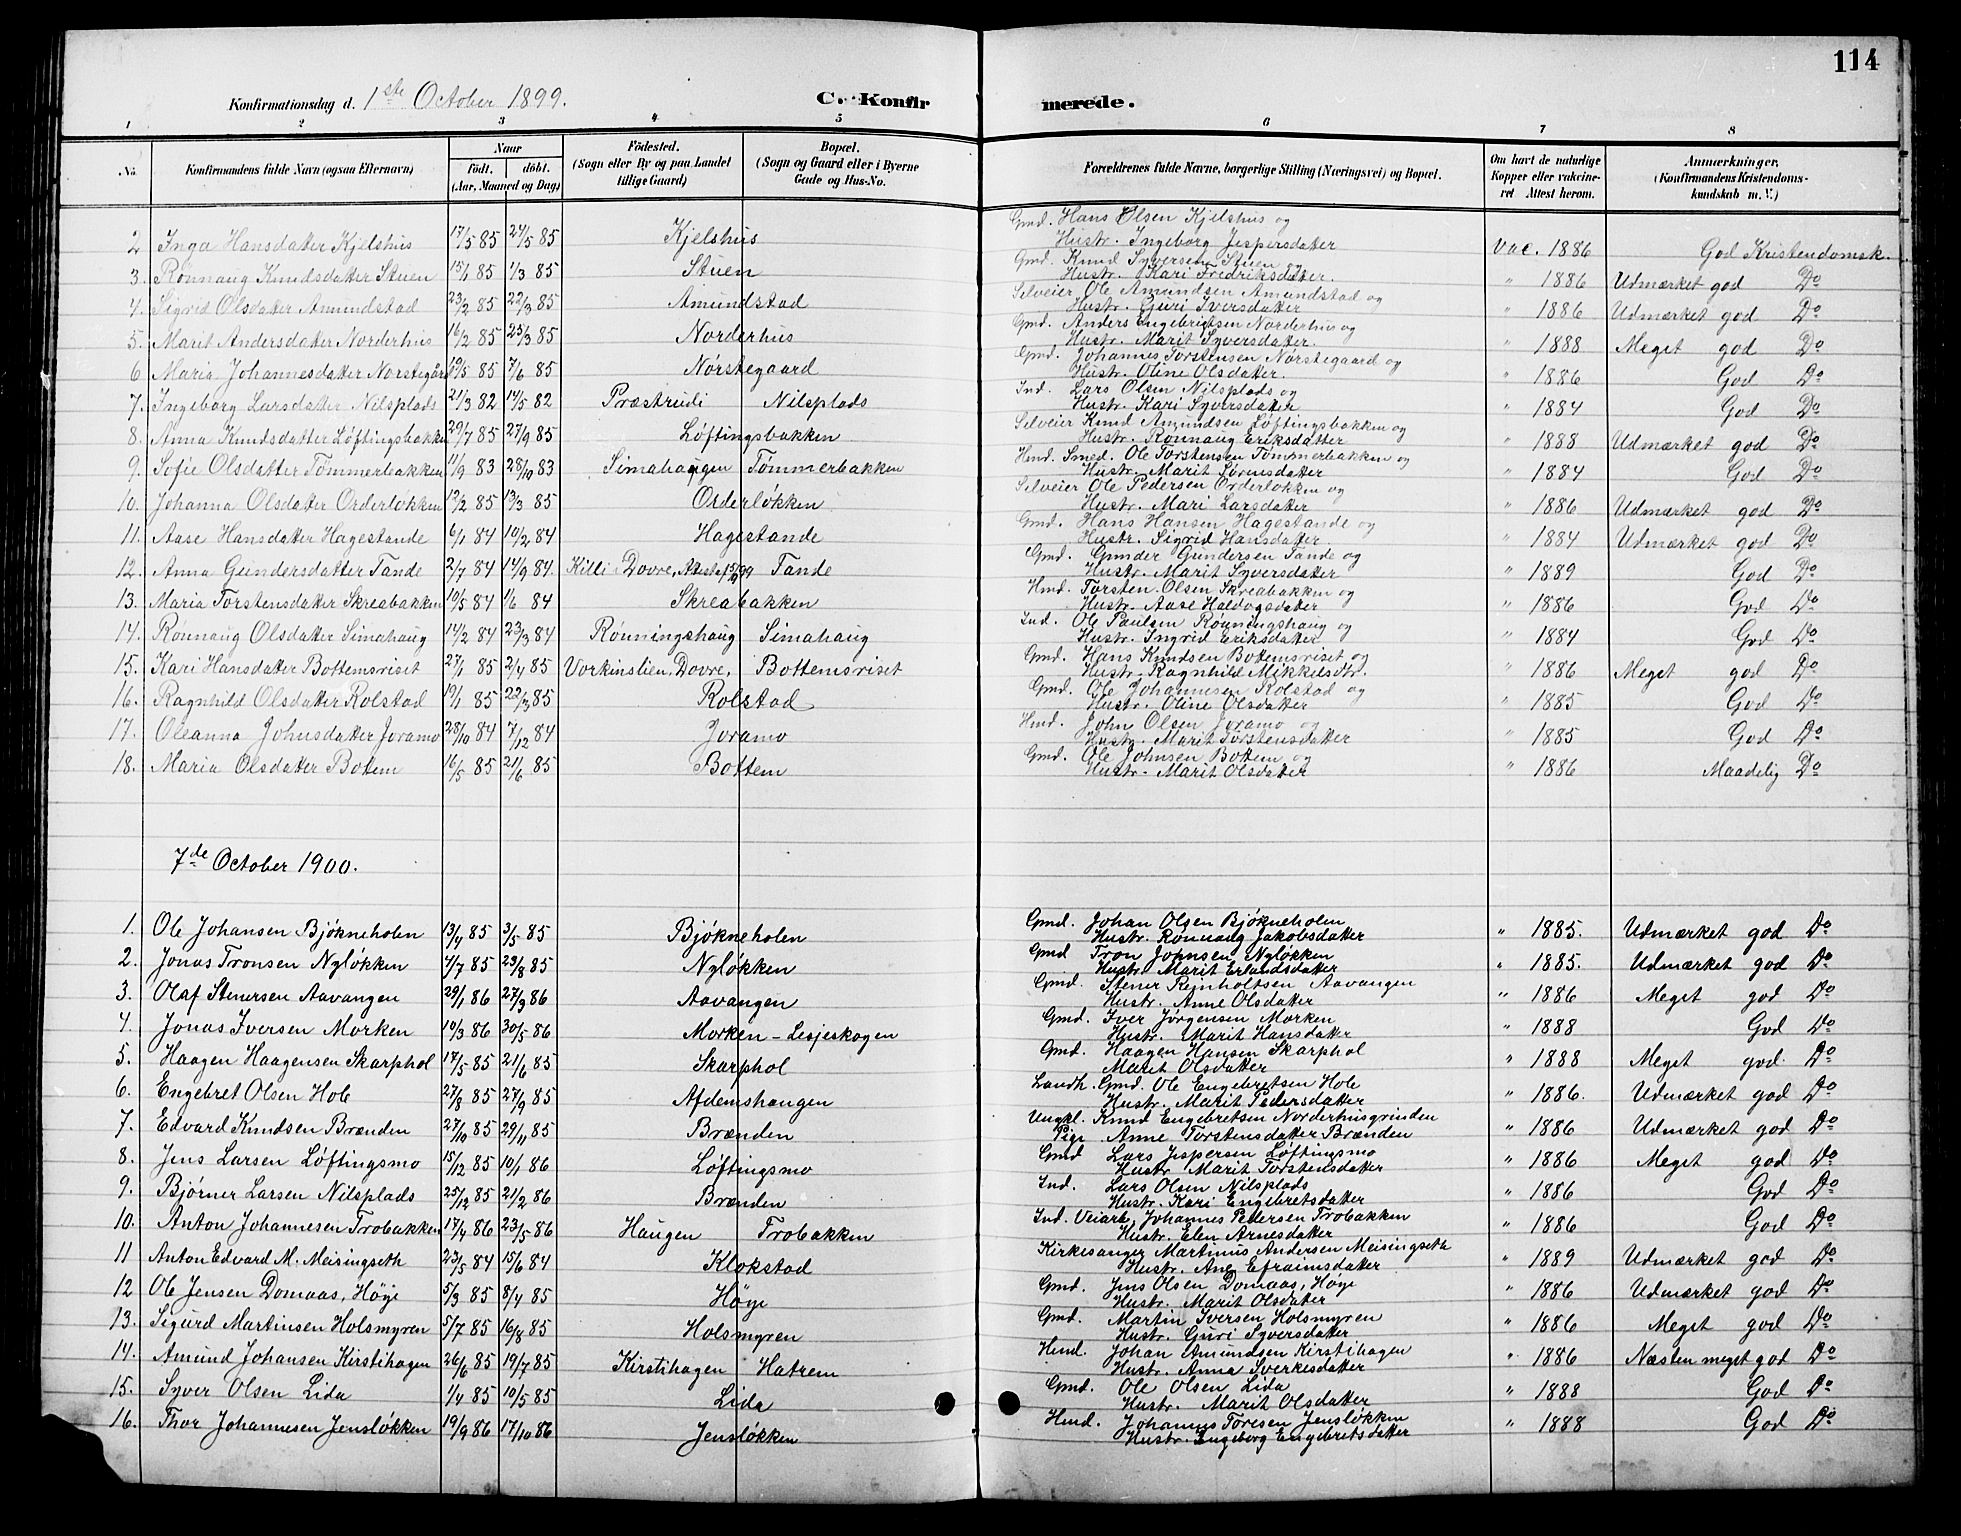 114
Konfirmationsdag d. 1ste October 1899. C. Konfirmerede.
1 2 3 4 5 6 7 8
No. Konfirmandens fulde Navn (ogsaa Efternavn) Naar født. døbt. (Aar, Maaned og Dag) Fødested. (Sogn eller By og paa Landet tillige Gaard) Bopæl. (Sogn og Gaard eller i Byerne Gade og Hus-No. Forældrenes fulde Navne, borgerlige Stilling (Næringsvei) og Bopæl. Om havt de naturlige Kopper eller vakcineret Attest herom. Anmærkninger. (Konfirmandens Kristendomskundskab m. V.)
2 Inga Hansdatter Kjelshus 17/5 85 24/5 85 Kjelshus Gmd. Hans Olsen Kjelshus og Hustr. Ingeborg Jespersdatter Vac. 1886 God Kristendomsk.
3. Rønnaug Knudsdatter Stuen 15/1 85 1/3 85 Stuen Gmd. Knud Syversen Stuen og Hustr. Kari Fredriksdatter. " 1886 Udmærket god Do
4. Sigrid Olsdatter Amundstad 23/2 85 22/3 85 Amundstad Selveier Ole Amundsen Amundstad og Hustr. Guri Iversdatter " 1886 Udmærket god Do
5. Marit Andersdatter Norderhus 16/2 85 25/3 85 Norderhus Gmd. Anders Engebrigtsen Norderhus og Hustr. Marit Syversdatter. " 1888 Meget god Do
6 Maria Johannesdatter Nørstegård 19/5 85 7/6 85 Nørstegaard Gmd. Johannes Torstensen Nørstegaard og Hustr. Oline Olsdatter. " 1886 God Do
7. Ingeborg Larsdatter Nilsplads 21/3 82 14/5 82 Præstrudi Nilsplads Ind. Lars Olsen Nilsplads og Hustr. Kari Syversdatter " 1884 God Do
8. Anna Knudsdatter Løftingsbakken 29/7 85 27/9 85 Løftingsbakken Selveier Knud Amundsen Løftingsbakken og Hustr. Rønnaug Eriksdatter " 1888 Udmærket god Do
9. Sofie Olsdatter Tømmerbakken 11/9 83 28/10 83 Simahaugen Tømmerbakken Hmd. Smed. Ole Torstensen Tømmerbakken og Hustr. Marit Sørensdatter " 1884 God Do
10. Johanna Olsdatter Orderløkken 12/2 85 13/3 85 Orderløkken Selveier Ole Pedersen Orderløkken og Hustr. Mari Larsdatter " 1886 Udmærket god Do
11. Aase Hansdatter Hagestande 6/1 84 10/2 84 Hagestande Gmd. Hans Hansen Hagestande og Hustr. Sigrid Hansdatter " 1884 Udmærket god Do
12. Anna Gundersdatter Tande 2/7 84 14/9 84. Killi Dovre, Attest Tande Gmd. Gunder Gundersen Tande og Hustr. Marit Syversdatter " 1889 God Do
13. Maria Torstensdatter Skreabakken 10/5 84 1/6 84 Skreabakken Hmd. Torsten Olsen Skreabakken og Hustr. Aase Haldogsdatter " 1886 God Do
14. Rønnaug Olsdatter Simahaug 14/2 84 23/3 84 Rønningshaug Simahaug Ind. Ole Paulsen Rønningshaug og Hustr. Ingrid Eriksdatter " 1884 God Do
15. Kari Hansdatter Bottemsriset 27/1 85 2/4 85 Vorkinslien, Dovre, Bottemsriset Gmd. Hans Knudsen Bottemsriset og Hustr. Ragnhild Mikkelsdtr. " 1886 Meget god Do
16. Ragnhild Olsdatter Rolstad 19/1 85 22/3 85 Rolstad Gmd. Ole Johannesen Rolstad og Hustr. Oline Olsdatter " 1885 God Do
17. Oleanna Johnsdatter Joramo 28/10 84 7/12 84 Joramo Hmd. John Olsen Joramo og Hustr. Marit Torstensdatter " 1885 God Do
18. Maria Olsdatter Bottem 16/5 85 21/6 85 Bottem Gmd. Ole Johnsen Bottem og Hustr. Marit Olsdatter " 1886 Maadelig Do
7de October 1900.
1. Ole Johansen Bjøkneholen 13/4 85 3/5 85 Bjøkneholen Gmd. Johan Olsen Bjøkneholen Hustr. Rønnaug Jakobsdatter " 1885. Udmærket god Do
2. Jonas Tronsen Nyløkken 4/7 85 23/8 85 Nyløkken Gmd Tron Johnsen Nyløkken Hustr. Marit Erlandsdatter " 1885. Udmærket god Do
3. Olaf Stenersen Aavangen 29/1 86 27/3 86 Aavangen Gmd. Stener Reinholtsen Aavangen Hustr. Anne Olsdatter " 1886 Meget god Do
4. Jonas Iversen Morken 19/3 86 30/5 86 Morken - Lesjeskogen Gmd. Iver Jørgensen Morken Hustr. Marit Hansdatter " 1888 God Do
5. Haagen Haagensen Skarphol 17/5 85 21/6 85 Skarphol Gmd. Haagen Hansen Skarphol Marit Olsdatter " 1888 Meget god. Do
6. Engebret Olsen Hole 27/8 85 27/9 85 Afdemshaugen Landh. Gmd. Ole Engebretsen Hole Hustr. Marit Pedersdatter " 1886. Udmærket god Do
7. Edvard Knudsen Brænden 27/10 85 29/11 85 Brænden Ungkl. Knud Engebretsen Norderhusgrinden Pige Anne Torstensdatter Brænden " 1886 Udmærket god Do
8. Jens Larsen Løftingsmo 15/12 85 10/1 86 Løftingsmo Gmd Lars Jespersen Løftingsmo Hustr. Marit Torstensdatter " 1886 Meget god Do
9. Bjørner Larsen Nilsplads 25/12 85 21/2 86 Brænden Ind. Lars Olsen Nilsplads Hustr. Kari Engebretsdatter " 1886 God Do
10. Anton Johannesen Trobakken 17/4 86 23/5 86 Haugen Trobakken Ind. Veiarb. Johannes Pedersen Trobakken Hustr. Elen Arnesdatter " 1886 God Do
11 Anton Edvard M. Meisingseth 23/5 84 15/6 84 Klokstad Kirkesanger Martinus Andersen Meisingseth Hustr. Ane Efraimsdatter " 1889 Udmærket god Do
12 Ole Jensen Domaas, Høye 5/3 85 8/4 85 Høye Gmd. Jens Olsen Domaas, Høye Hustr. Marit Olsdatter " 1886 Udmærket god Do
13. Sigurd Martinsen Holsmyren 5/7 85 16/8 85 Holsmyren Gmd. Martin Iversen Holsmyren Hustr. Guri Syversdatter " 1886 Meget god Do
14. Amund Johansen Kirstihagen 26/6 85 19/7 85 Kirstihagen Hatrem Hmd. Johan Amundsen Kirstihagen Hustr. Anna Sverkesdatter " 1886 Næsten meget god Do
15. Syver Olsen Lida 1/4 85 10/5 85 Lida Gmd. Ole Olsen Lida Hustr. Marit Olsdatter " 1888 God Do
16. Thor Johannesen Jensløkken 19/9 86 17/10 86 Jensløkken Hmd. Johannes Toresen Jensløkken Hustr. Ingeborg Engebretsdatter " 1888 God Do